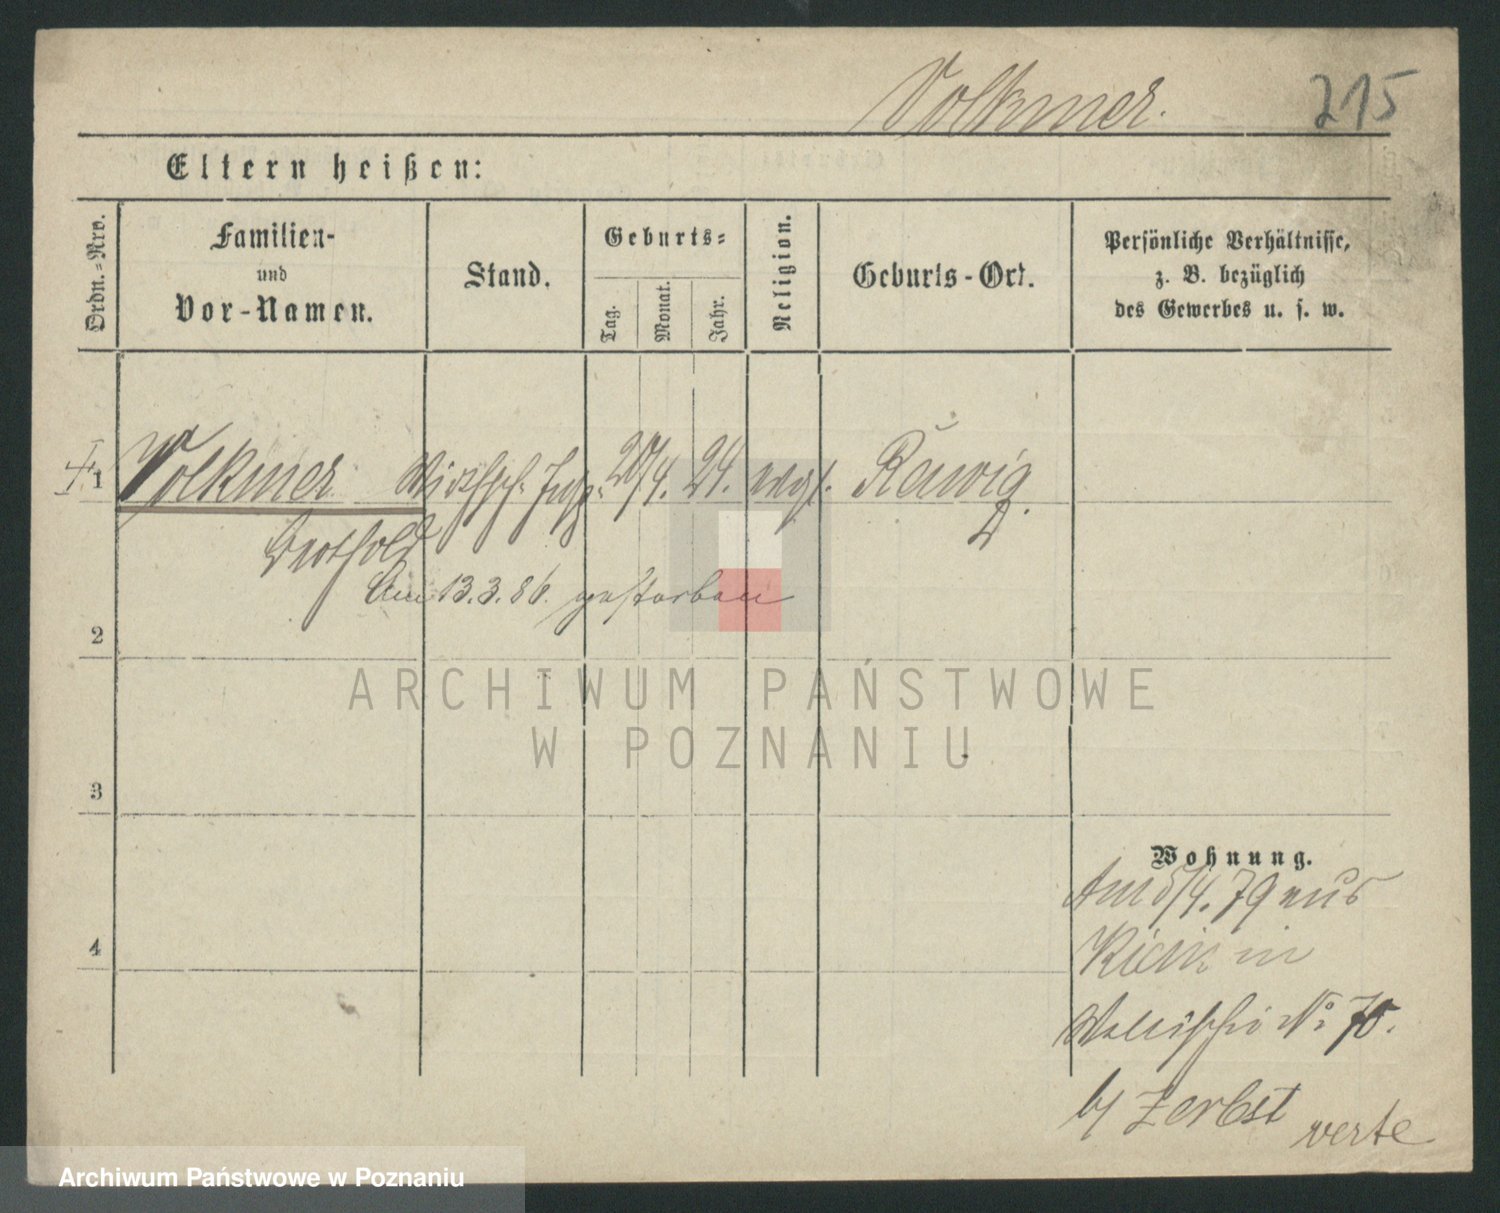 Volkmer.
215
Eltern heißen:
Ordn.=Nro.
Familien-
und
Vor-Namen.
Stand.
Geburts=
Tag.
Monat.
Jahr.
Religion.
Geburts-Ort.
Persönliche Verhältnisse,
z. B. bezüglich
des Gewerbes u. s. w.
1
Volkmer
Wirthsch. Insp. 20/4. 24.
Berthold
Am 13.3.86. gestorben
2
3
4
Wohnung.
Am 5/4. 79 aus
in
Wallischei No 70.
b/ Zerbst
verte
ARCHIWUM PAŃSTWOWE
W POZNANIU
Archiwum Państwowe w Poznaniu